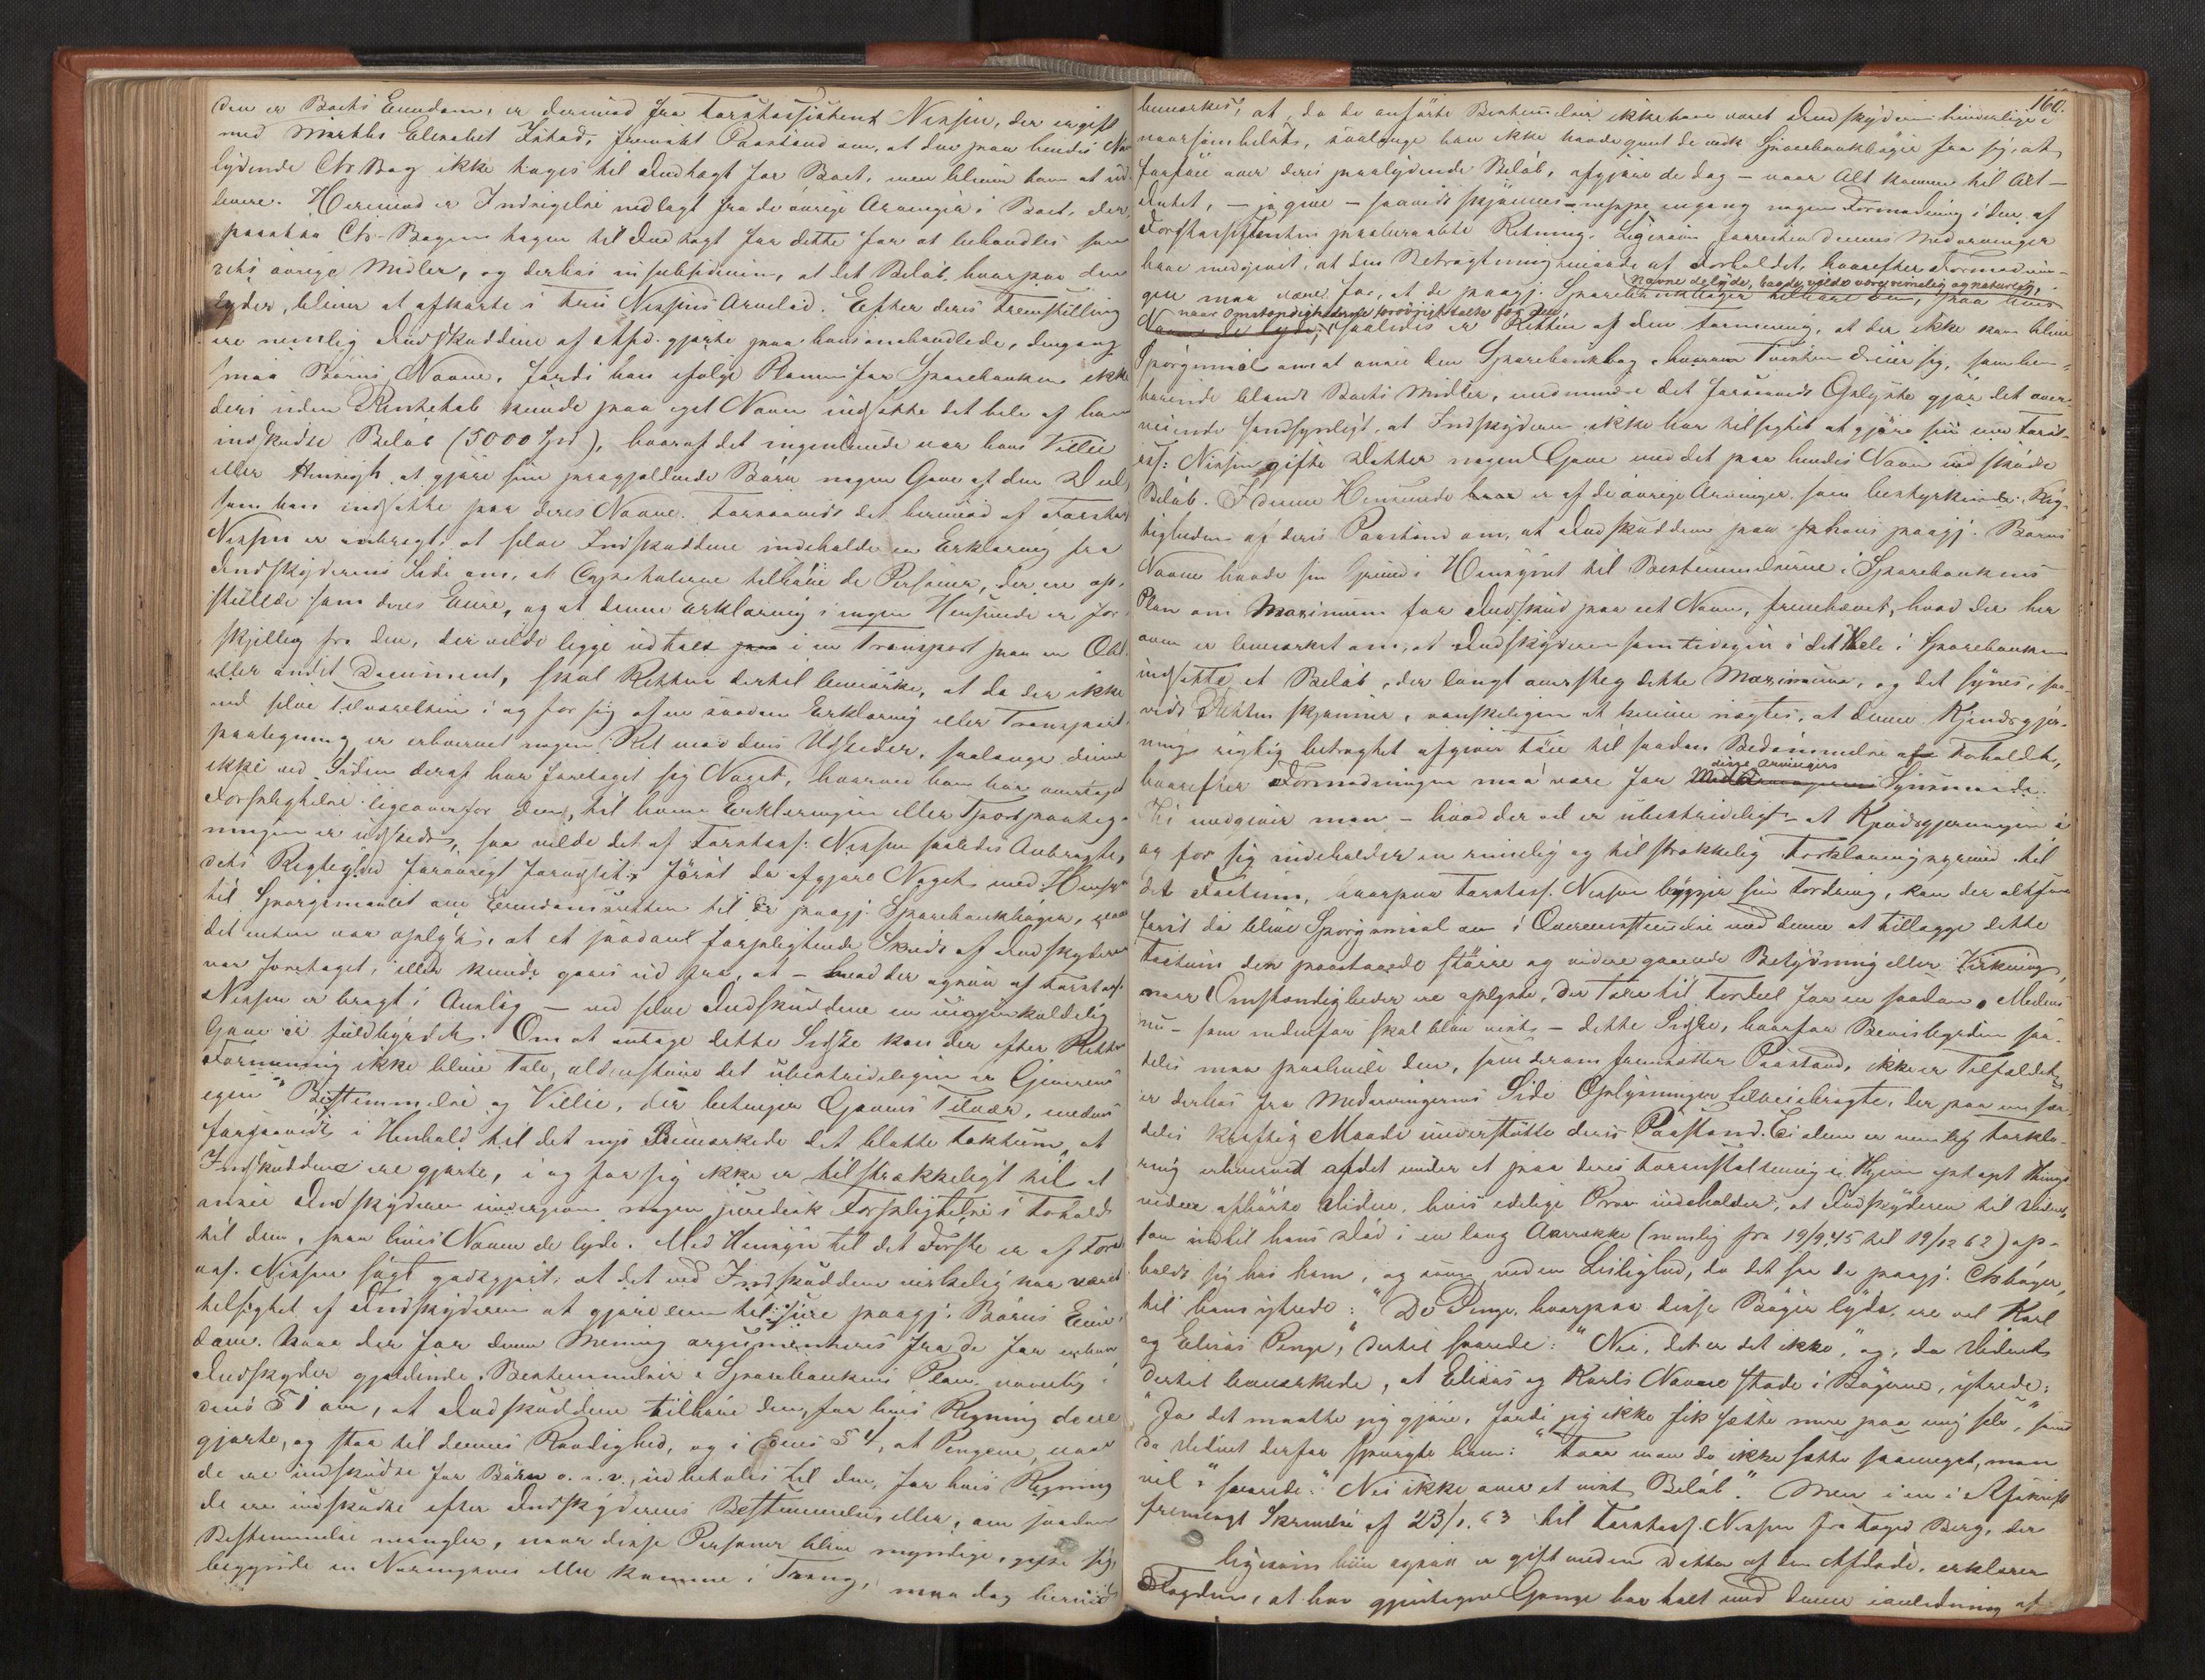 den er Boets Eiendom, er derimod fra Forstassistent Nissen, der er gift
med Marthe Elisabet Istad, fremsat Paastand om, at den paa hendes Navn
lydende Ct. Bog ikke tages til Indtægt for Boet, men bliver ham at ud-
levere. Herimod er Indsigelse nedlagt fra de øvrige Arvinger i Boet, der
paastaa Ct-Bogen tagen til Indtægt for dette for at behandles som
dets øvrige Midler, og derhos in subsidium, at det Beløb, hvorpaa den
lyder, bliver at afkorte i Fru Nissens Arvelod. Efter deres Fremstilling
ere nemlig Indskuddene af Afd. gjorte paa hans omhandlede, dengang
smaa Børns Navne, fordi han ifølge Planen for Sparebanken ikke
deri uden Rentetab kunde paa eget Navn indsætte det hele af ham
indskudte Beløb (5000 Spd), hvoraf det ingenlunde var hans Villie
eller Hensigt at gjøre sine paagjældende Børn nogen Gave af den Deel,
som han indsatte paa deres Navne. Forsaavidt det herimod af Forstas.
Nissen er anbragt, at selve Indskuddene indeholde en Erklæring fra
Indskyderens Side om, at Capitalerne tilhøre de Personer, der ere op-
stillede som deres Eiere, og at denne Erklæring i ingen Henseende er for-
skjellig fra den, der vilde ligge udtalt i en Transport paa en Obl.
eller andet Document, skal Retten dertil bemærke, at da der ikke
ved selve Tilværelsen i og for sig af en saadan Erklæring eller Transport-
paategning er erhvervet nogen Ret mod dens Udsteder, saalænge denne
ikke ved Siden deraf har foretaget sig Noget, hvorved han har overtaget
Forpligtelse ligeoverfor den, til hvem Erklæringen eller Tportpaateg-
ningen er udstedt, saa vilde det af Forstass: Nissen saaledes Anbragte,
dets Rigtighed forøvrigt forudsat, først da afgjøre Noget med Hensyn
til Spørgsmaalet om Eiendomsretten til de paagj. Sparebankbøger, naar
det enten var oplyst, at et saadant forpligtende Skridt af Indskyderen
var foretaget, eller kunde gaaes ud fra, at – hvad der ogsaa af Forstas.
Nissen er bragt i Anslag – ved selve Indskuddene en uigjenkaldelig
Gave er fuldbyrdet. Om at antage dette Sidste kan der efter Rettens
Formening ikke blive Tale, aldenstund det ubestrideligen er Giverens
egen Bestemmelse og Villie, der betinger Gavens Tilvær, medens
forsaavidt i Henhold til det nys Bemærkede det blotte Faktum, at
Indskuddene ere gjorte, i og for sig ikke er tilstrækkeligt til at
ansee Indskyderen undergiven nogen juridisk Forpligtelse i Forhold
til dem, paa hvis Navn de lyde. Med Hensyn til det Første er af Forst-
ass. Nissen søgt godtgjort, at det ved Indskuddene virkelig har været
tilsigtet af Indskyderen at gjøre dem til sine paagj. Børns Eien-
dom. Naar der for denne Mening argumenteres fra de for enhver
Indskyder gjældende Bestemmelser i Sparebankens Plan, nemlig i
dens § 1 om, at Indskuddene tilhøre den, for hvis Regning de ere
gjorte, og staa til dennes Raadighed, og i dens § 4, at Pengene, naar
de ere indskudte for Børn o. s. v., udbetales til den, for hvis Regning
de ere indskudte efter Indskyderens Bestemmelse, eller, om saadan
Bestemmelse mangler, naar disse Personer blive myndige, gifte sig,
begynde en Næringsvei eller komme i Trang, maa dog herved
160.
bemærkes, at da de anførte Bestemmelser ikke have været Indskyderen hinderlige i
naarsomhelst, saalænge han ikke havde givet de ndk Sparebankbøger fra sig, at
forføie over deres paalydende Beløb, afgive de dog – naar Alt kommer til Alt –
Intet, – ja give – saavidt skjønnes – neppe engang nogen Formodning i den af
Forstassistenten paaberaabte Retning. Ligesom forresten dennes Medarvinger
have medgivet, at den Betragtningsmaade af Forholdet, hvorefter Formodnin-
gen maa være for, at de paagj. Sparebankbøger tilhøre den, paa hvis
Navne de lyde, baade vilde være rimelig og naturlig,
naar Omstændighederne forøvrigt talte for den,
Navn de lyde; saaledes er Retten af den Formening, at der ikke kan blive
Spørgsmaal om at ansee den Sparebankbog, hvorom Tvisten dreier sig, som hen-
hørende blandt Boets Midler, medmindre det foreliggende Oplyste gjør det over-
veiende sandsynligt, at Indskyderen ikke har tilsigtet at gjøre sin nu Forst-
ass: Nissen gifte Datter nogen Gave med det paa hendes Navn indskudte
Beløb. I denne Henseende er af de øvrige Arvinger som bestyrkende Rig-
tigheden af deres Paastand om, at Indskuddene paa hans paagj. Børns
Navne havde sin Grund i Hensynet til Bestemmelserne i Sparebankens
Plan om Maximum for Indskud paa eet Navn, fremhævet, hvad der her
oven er bemærket om, at Indskyderen samtidigen i det Hele i Sparebanken
indsatte et Beløb, der langt oversteg dette Maximum, og det synes, saa-
vidt Retten skjønner, vanskeligen at kunne nægtes, at denne Kjendsgjer-
ning rigtig betragtet afgiver Føie til saadan Bedømmelse af Forholdet,
hvorefter Formodningen maa være for disse Arvingers Synsmaade.
Thi medgiver man – hvad der vel er ubestrideligt – at Kjendsgjerningen i
og for sig indeholder en rimelig og tilstrækkelig Forklaringsgrund til
det Factum, hvorpaa Forstass. Nissen bygger sin Fordring, kan der altsaa
først da blive Spørgsmaal om i Overensstemmelse med denne at tillægge dette
Factum den paastaaede større og videregaaende Betydning eller Virkning,
naar Omstændigheder ere oplyste, der tale til Fordeel for en saadan. Medens
nu – som nedenfor skal blive viist – dette Sidste, hvorfor Bevisbyrden saa-
ledes maa paahvile den, som derom fremsætter Paastand, ikke er Tilfældet,
er derhos fra Medarvingernes Side Oplysninger tilveiebragte, der paa en sær-
deles kraftig Maade understøtte deres Paastand. Ei alene er nemlig Forkla-
ring erhvervet af det under et paa deres Foranstaltning i Hjem optaget Things-
vidne afhørte Vidne, hvis edelige Prov indeholder, at Indskyderen til Vidnet,
som indtil hans Død i en lang Aarrække (nemlig fra 19/9 45 til 19/12 62) op-
holdt sig hos ham, og som, ved en Leilighed, da det saa de paagj. Ctbøger,
til ham ytrede: "De Penge, hvorpaa disse Bøger lyde, ere vel Karl
og Elisas Penge," dertil svarede: "Nei, det er det ikke," og, da Vidnet
dertil bemærkede, at Elisas og Karls Navne stode i Bøgerne, ytrede:
"Ja det maatte jeg gjøre, fordi jeg ikke fik sætte mere paa mig selv," samt
da Vidnet derfor spurgte ham: "Faar man da ikke sætte saameget, man
vil" svarede: "Nei ikke over et vist Beløb". Men i en i Afskrift
fremlagt Skrivelse af 23/1. 63 til Forstass. Nissen fra Foged Berg, der
ligesom hiin ogsaa er gift med en Datter af den Afdøde, erklærer
Fogden, at han gjentagne Gange har talt med denne i anledning af